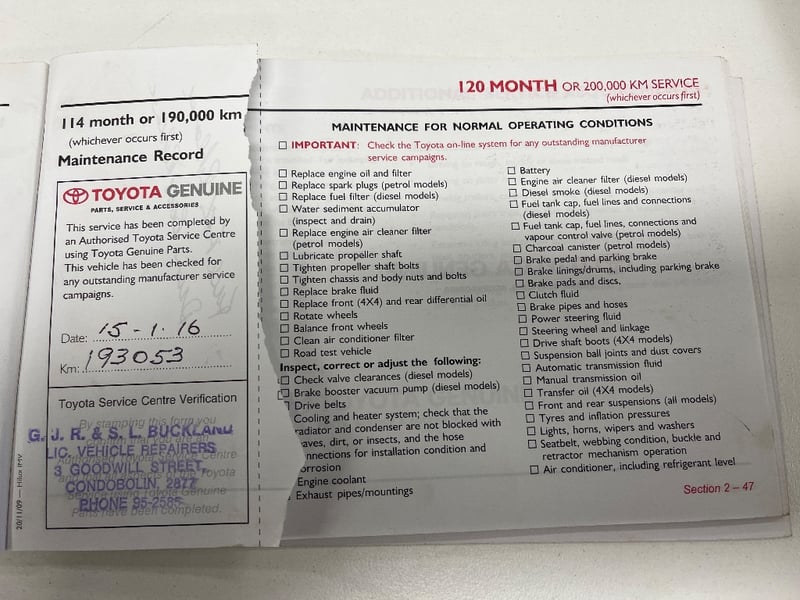 114 month or 190,000 km
(whichever occurs first)
Maintenance Record
TOYOTA GENUINE
PARTS, SERVICE & ACCESSORIES
This service has been completed by
an Authorised Toyota Service Centre
using Toyota Genuine Parts.
This vehicle has been checked for
any outstanding manufacturer service
campaigns.
Date: 15-1.16
Km: 193053
Toyota Service Centre Verification
By stamping this form you
G. J. R. & S. L. BUCKLAND
LIC. VEHICLE REPAIRERS
3 GOODWILL STREET,
CONDOBOLIN, 2877
PHONE 95-2585
Parts have been completed.
20/11/09 — Hilux IMV
120 MONTH OR 200,000 KM SERVICE
(whichever occurs first)
MAINTENANCE FOR NORMAL OPERATING CONDITIONS
IMPORTANT: Check the Toyota on-line system for any outstanding manufacturer
service campaigns.
Replace engine oil and filter
Replace spark plugs (petrol models)
Replace fuel filter (diesel models)
Water sediment accumulator
(inspect and drain)
Replace engine air cleaner filter
(petrol models)
Lubricate propeller shaft
Tighten propeller shaft bolts
Tighten chassis and body nuts and bolts
Replace brake fluid
Replace front (4X4) and rear differential oil
Rotate wheels
Balance front wheels
Clean air conditioner filter
Road test vehicle
Inspect, correct or adjust the following:
Check valve clearances (diesel models)
Brake booster vacuum pump (diesel models)
Drive belts
Cooling and heater system; check that the
radiator and condenser are not blocked with
eaves, dirt, or insects, and the hose
onnections for installation condition and
orrosion
Engine coolant
Exhaust pipes/mountings
Battery
Engine air cleaner filter (diesel models)
Diesel smoke (diesel models)
Fuel tank cap, fuel lines and connections
(diesel models)
Fuel tank cap, fuel lines, connections and
vapour control valve (petrol models)
Charcoal canister (petrol models)
Brake pedal and parking brake
Brake linings/drums, including parking brake
Brake pads and discs,
Clutch fluid
Brake pipes and hoses
Power steering fluid
Steering wheel and linkage
Drive shaft boots (4X4 models)
Suspension ball joints and dust covers
Automatic transmission fluid
Manual transmission oil
Transfer oil (4X4 models)
Front and rear suspensions (all models)
Tyres and inflation pressures
Lights, horns, wipers and washers
Seatbelt, webbing condition, buckle and
retractor mechanism operation
Air conditioner, including refrigerant level
Section 2 – 47